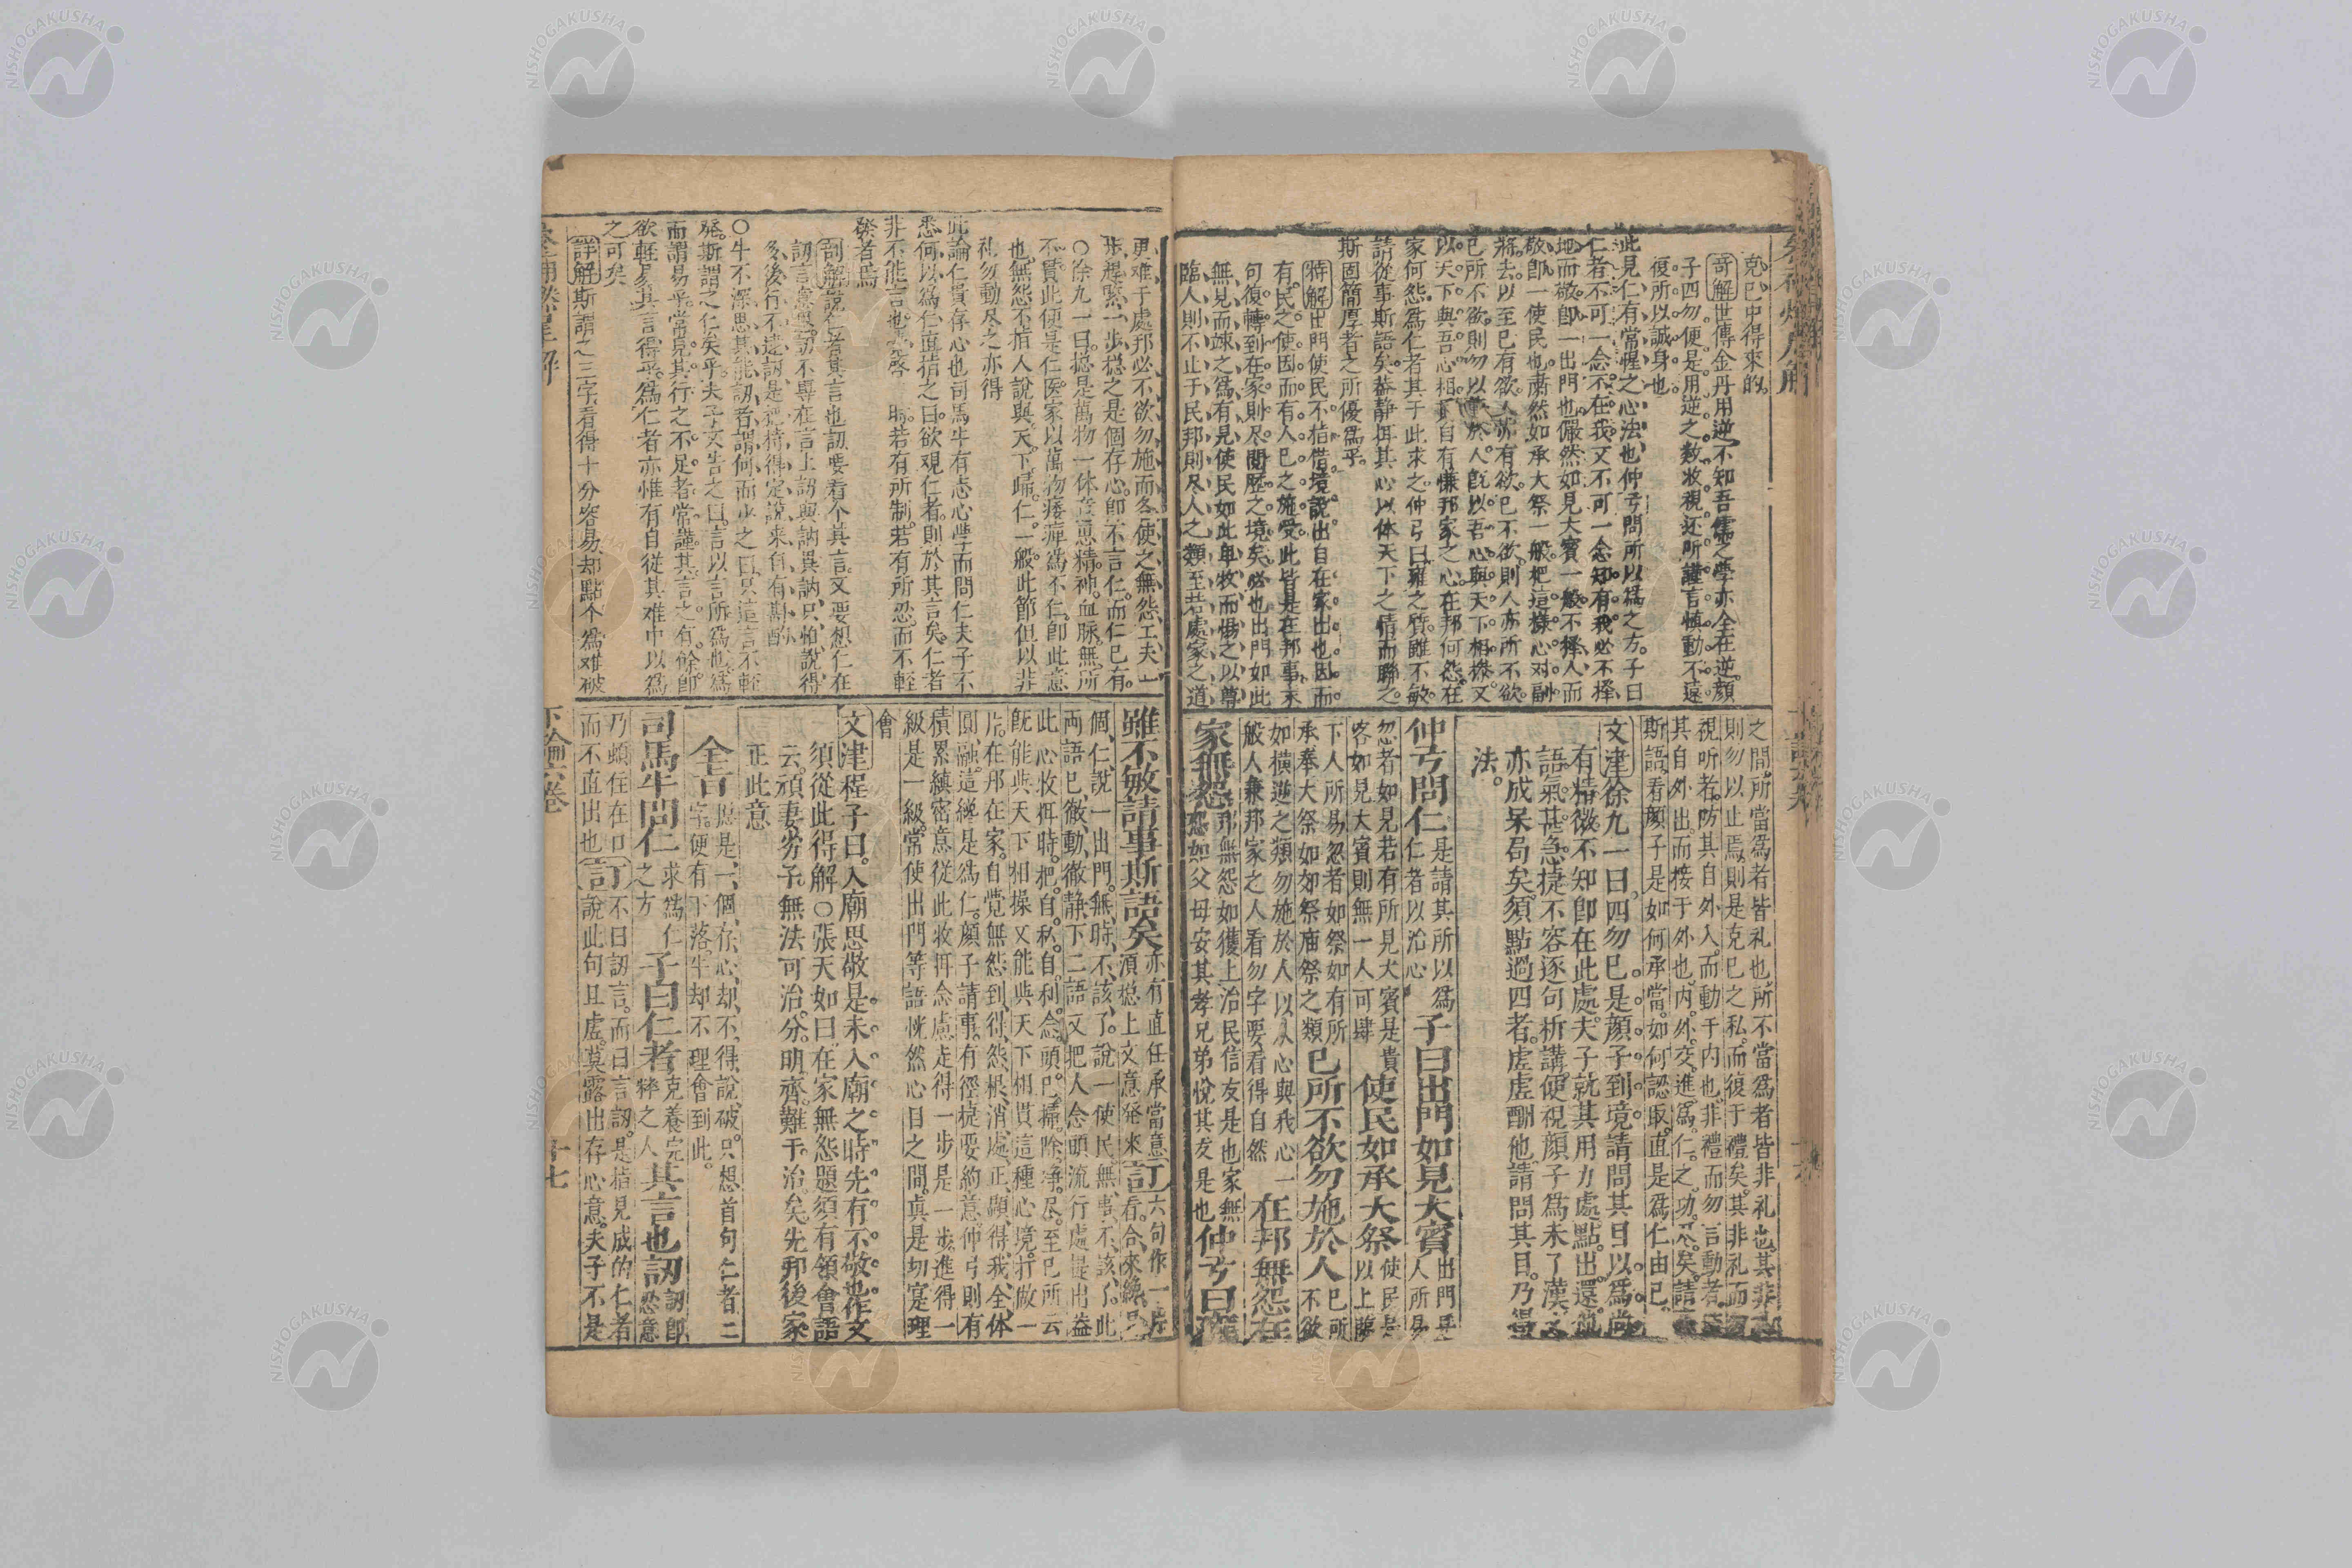 克己中得來的。
奇解世傳金丹用逆不知吾儒之學亦全在逆顏
子四勿便是用逆之教收視还所謹言慎動不遠
復所以誠身也
此見仁有常惺之心法也仲弓問所以為之方子曰
仁者不可一念不在我又不可一念知有我必不擇
地而敬即一出門也儼然如見大賓一般不擇人而
敬即一使民也肅然如承大祭一般把這樣心对副
將去以至己有欲人亦有欲己不欲則人亦所不欲
己所不欲則勿以於人既以吾心與天下相操又
以天下與吾心相自有慊邦家之心在邦何怨在
家何怨為仁者其于此求之仲弓曰雍之質雖不敏
請從事斯語矣蓋静㧕其心以体天下之情而聯之
斯固簡厚者之所優為乎
特解出門使民不指借境說出自在家出也因而
有民之使因而有人己之施受此皆是在邦事末
句復轉到在家則尽閱歷之境矣必也出門如此
無見而竦之為有見使民如此卑牧而惕之以尊
臨人則不止于民邦則尽人之類至若處家之道
之間所當為者皆礼也所不當為者皆非礼也其非
則勿以止焉則是克己之私而復于禮矣其非礼而
視听者防其自外入而動于内也非禮而勿言動者
其自外出而接于外也内外交進為仁之功矣請
斯語看顏子是如何承當如何認取直是為仁由己
文津徐九一曰四勿已是顏子到境請問其目以為尚
有精微不知即在此處夫子就其用力處點出還
語氣甚急捷不容逐句析講便視顏子為未了漢
亦成呆局矣須點過四者虛虛酬他請問其目乃得
法
仲弓問仁是請其所以為仁者以治心子曰出門如見大賓出門是人所易
忽者如見若有所見大賓是貴客如見大賓則無一人可肆使民如承大祭使民是以上臨
下人所易忽者如祭如有所承奉大祭如如祭庙祭之類己所不欲勿施於人己所不欲
如橫逆之類勿施於人以人心與我心一般人兼邦家之人看勿字要看得自然在邦無怨在
家無怨邦無怨如獲上治民信友是也家無怨如父母安其孝兄弟悅其友是也仲弓曰雍
更难于處邦必不欲勿施而各使之無怨工夫一
步緊一步总之是個存心即不言仁而仁已有
○徐九一曰总是萬物一体意思精神血脉無所
不貫此便是仁医家以萬物痿痺為不仁即此意
也無怨不指人說與天下歸仁一般此節但以非
礼勿動尽之亦得
此論仁貫存心也司馬牛有志心學而問仁夫子不
悉何以為仁直指之曰欲观仁者則於其言矣仁者
非不能言也時若有所制若有所忍而不輕
發者焉
剖解說仁者其言也訒要看个其言又要想仁在
訒言裏訒不專在言上訒與訥異訥只怕說得
多後行不逮訒是把持得定說來自有斟酌
○牛不深思其能訒者謂何而少之曰只這言不輕
發斯謂之仁矣乎夫子又告之曰言以言所為也為
而謂易乎常見其行之不足者常謹其言之有餘即
欲輕易其言得乎為仁者亦惟有自從其难中以為
之可矣
詳解斯謂之三字看得十分容易却點个為难破
雖不敏請事斯語矣亦有直任承當意須总上文意發來訂六句作一片看合來總只
個仁說一出門無時不該了說一使民無事不該了此
两語已徹動徹静下二語又把人念頭流行處提出益
此心收㧕時把自私自利念頭已掃除净尽至己所云
既能與天下相操又能與天下相貫這種心境打做一
片在邦在家自覺無怨到得怨根消處正顯得我全体
圓融這總是為仁顏子請事有徑捷要約意仲弓則有
積累縝密意從此收㧕念慮走得一步是一步進得一
級是一級常使出門等語恍然心目之間真是切寔理
會
文津程子曰入廟思敬是未入廟之時先有不敬也作文
須從此得解○張天如曰在家無怨題須有領會語
云頑妻劣子無法可治分明齊難于治矣先邦後家
正此意
全旨总是一個存心却不得說破只想首句仁者二字便有下落牛却不理會到此
司馬牛問仁求為仁之方子曰仁者克養完粹之人其言也訒訒即恐意
乃頓住在口而不直出也訂不曰訒言而曰言訒是指見成的仁者說此句且虛莫露出存心意夫子不是
下論六卷
十七